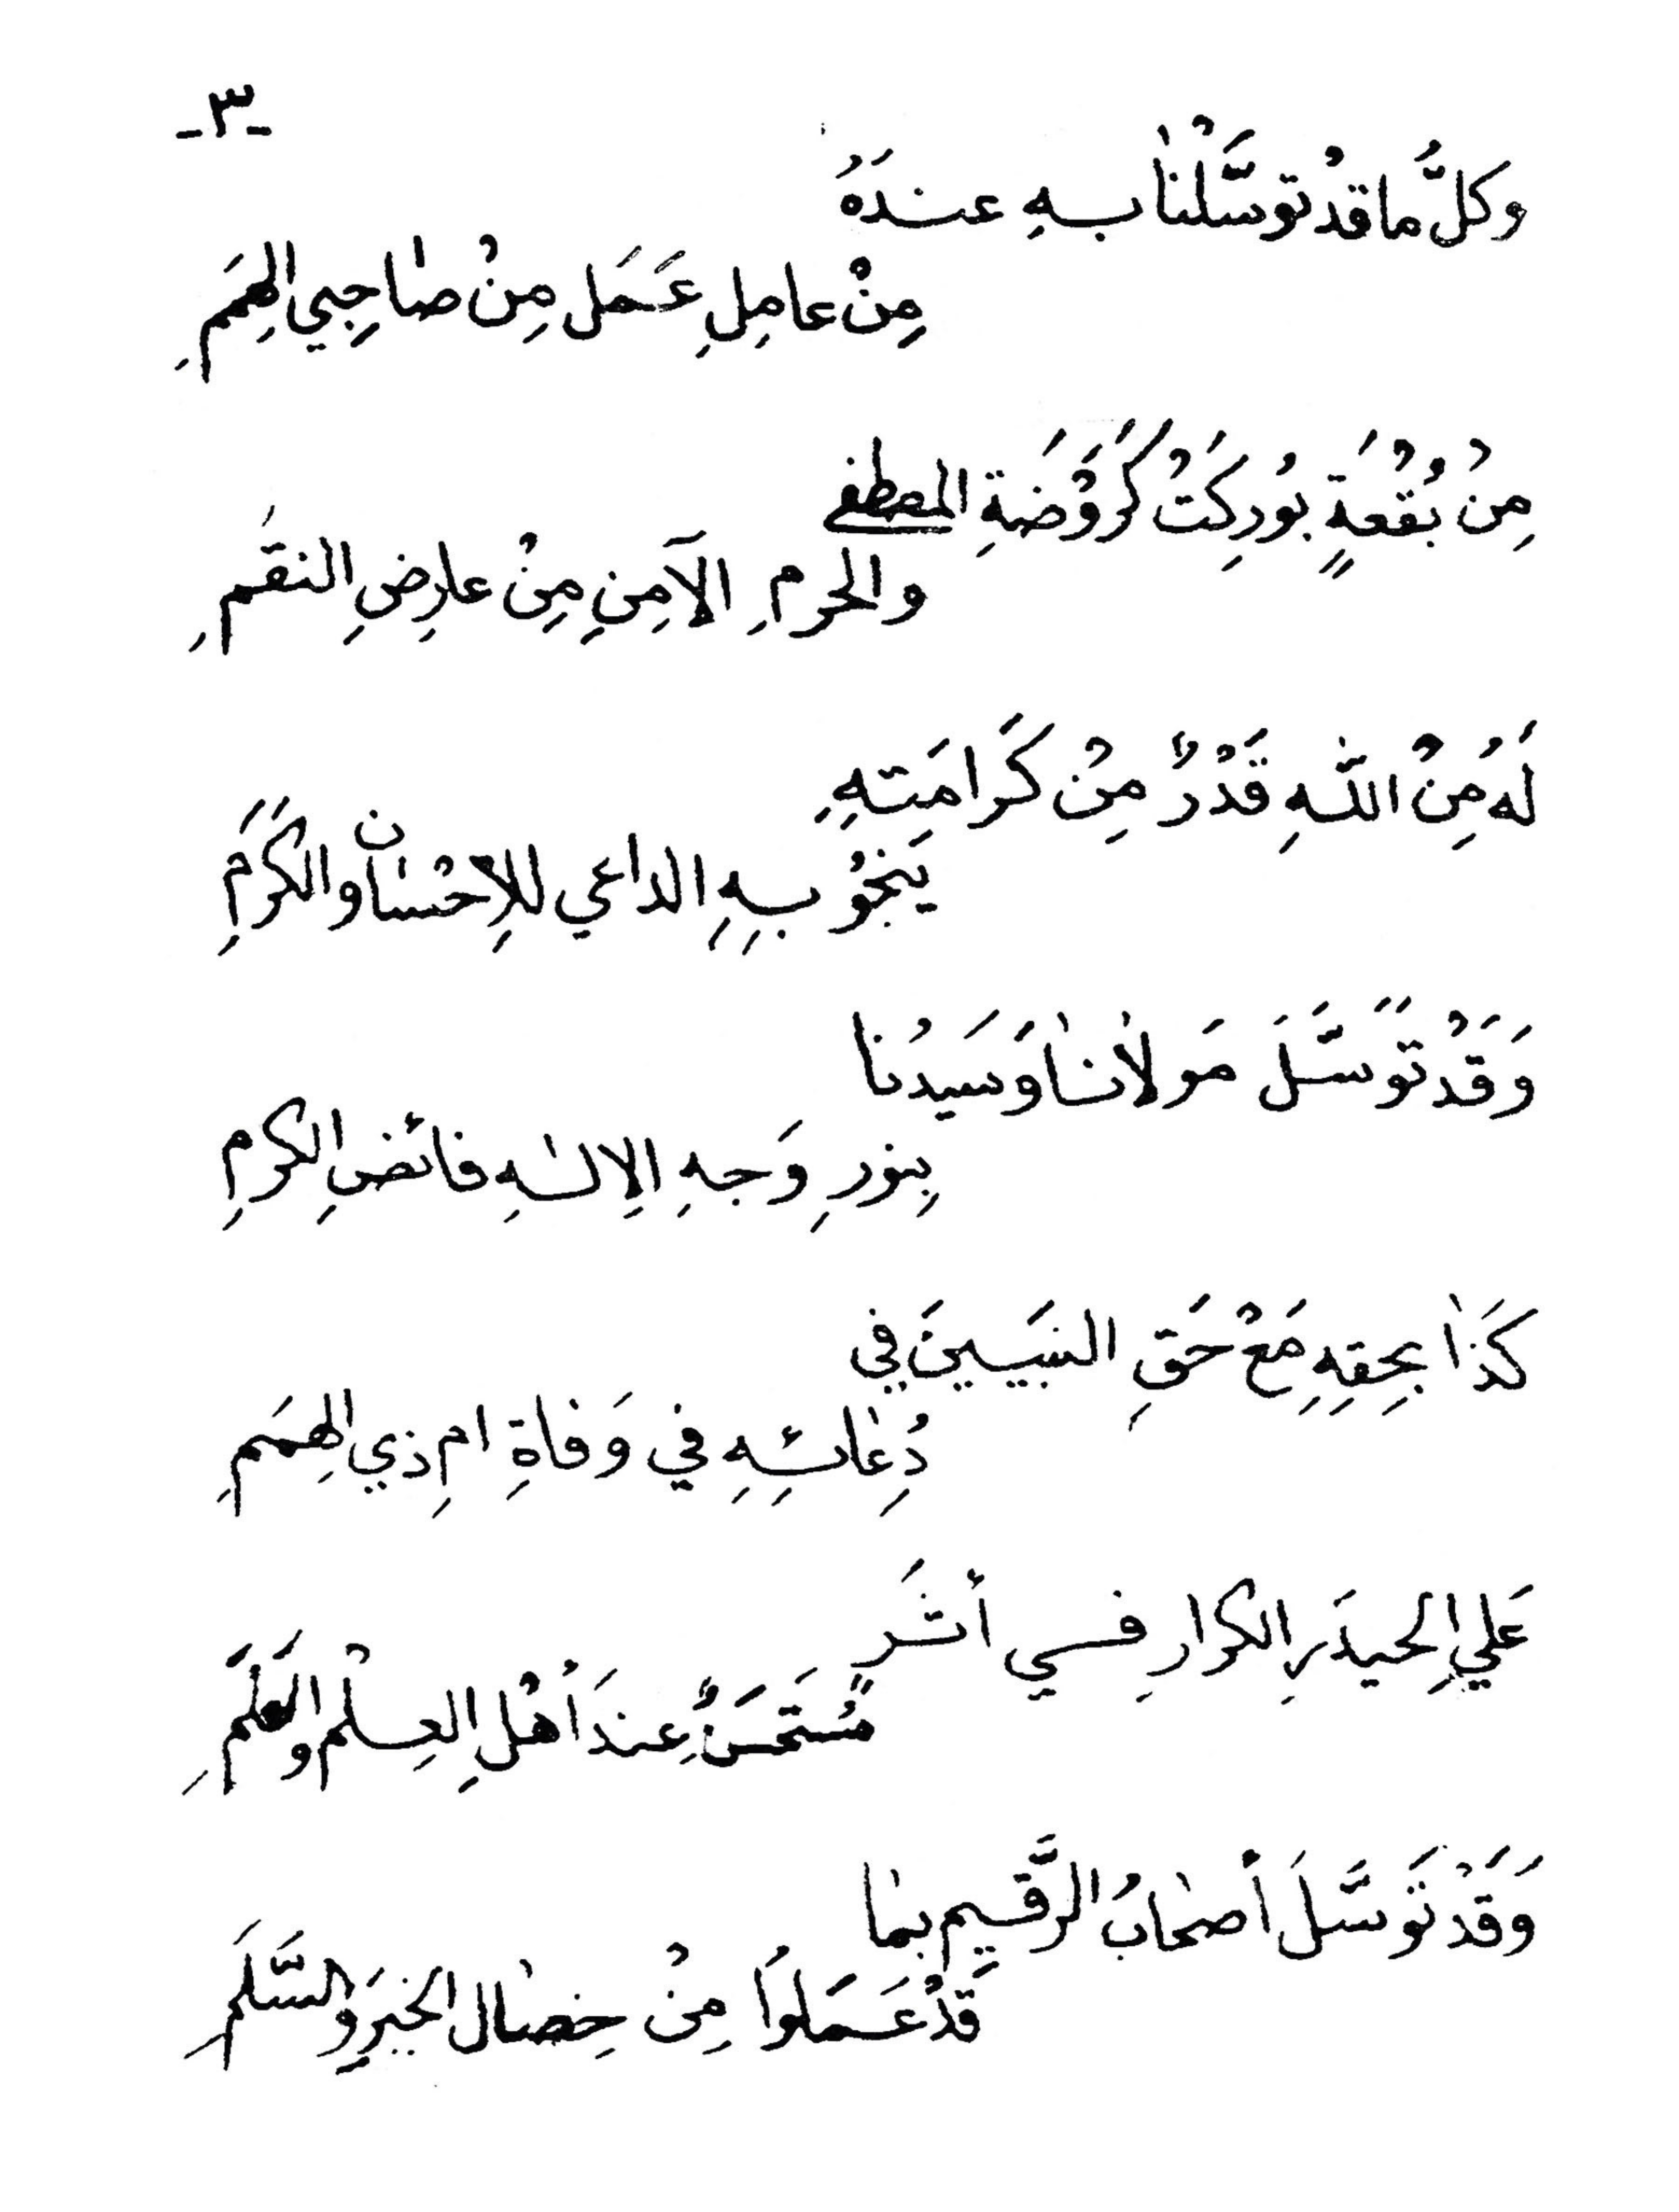 -٣-
وَكلُّ ما قدْ توسَّلْنا بهِ عندَهُ
مِنْ عامِلِ عَمَل مِنْ صاحِبي الهِمَمِ
مِنْ بُقْعَةٍ بُورِكَتْ كَرَوْضَةِ المصطفى
والحرمِ الآمِنِ مِنْ عارِضِ النقَمِ
لَهُ مِنْ اللّٰهِ قَدْرٌ مِنْ كَرَامَتهِ
يَنجُو بِهِ الداعي للاِحْسان والكَرَمِ
وَقَدْ تَوَسَّلَ مَولانا وَسَيدُنا
بِنورِ وَجهِ الاِلٰهِ فائضِ الكرمِ
كَذَا بِحِقِهِ مَعْ حَقِ النبَيينَ في
دُعَائِهِ في وَفاةِ امِ ذي الهِمَمِ
عَليِ الحيدَرِ الكرارِ في أثَر
مُستَحسَنٌ عِندَ أهْلِ العِلْم والعَلَمِ
وَقَدْ تَوَسَّلَ أصحابُ الرَّقيمِ بما
قَدْ عَمَلوا مِنْ خِصال الخيرِ والسَّلَمِ